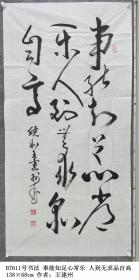 事能知足心常
乐人到无求品
自高
B7611号书法 事能知足心常乐 人到无求品自高
138×68cm 作者：王建州